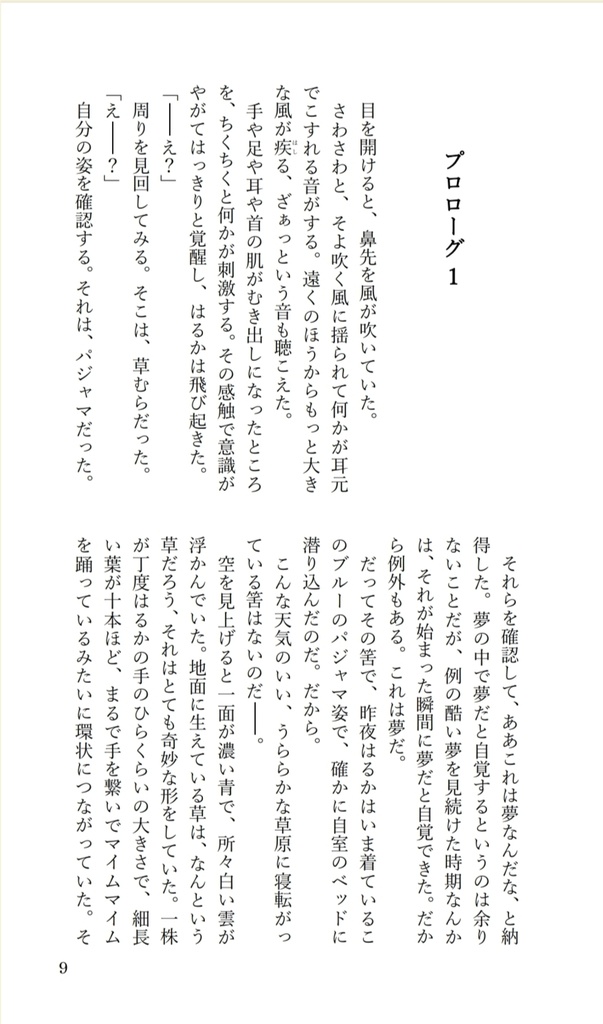 プロローグ 1
目を開けると、鼻先を風が吹いていた。
さわさわと、そよ吹く風に揺られて何かが耳元
でこすれる音がする。遠くのほうからもっと大き
な風が疾る、ざぁっという音も聴こえた。
手や足や耳や首の肌がむき出しになったところ
を、ちくちくと何かが刺激する。その感触で意識が
やがてはっきりと覚醒し、はるかは飛び起きた。
「――え？」
周りを見回してみる。そこは、草むらだった。
「え――？」
自分の姿を確認する。それは、パジャマだった。
それらを確認して、ああこれは夢なんだな、と納
得した。夢の中で夢だと自覚するというのは余り
ないことだが、例の酷い夢を見続けた時期なんか
は、それが始まった瞬間に夢だと自覚できた。だか
ら例外もある。これは夢だ。
だってその筈で、昨夜はるかはいま着ているこ
のブルーのパジャマ姿で、確かに自室のベッドに
潜り込んだのだ。だから。
こんな天気のいい、うららかな草原に寝転がっ
ている筈はないのだ――。
空を見上げると一面が濃い青で、所々白い雲が
浮かんでいた。地面に生えている草は、なんという
草だろう、それはとても奇妙な形をしていた。一株
が丁度はるかの手のひらくらいの大きさで、細長
い葉が十本ほど、まるで手を繋いでマイムマイム
を踊っているみたいに環状につながっていた。そ
9